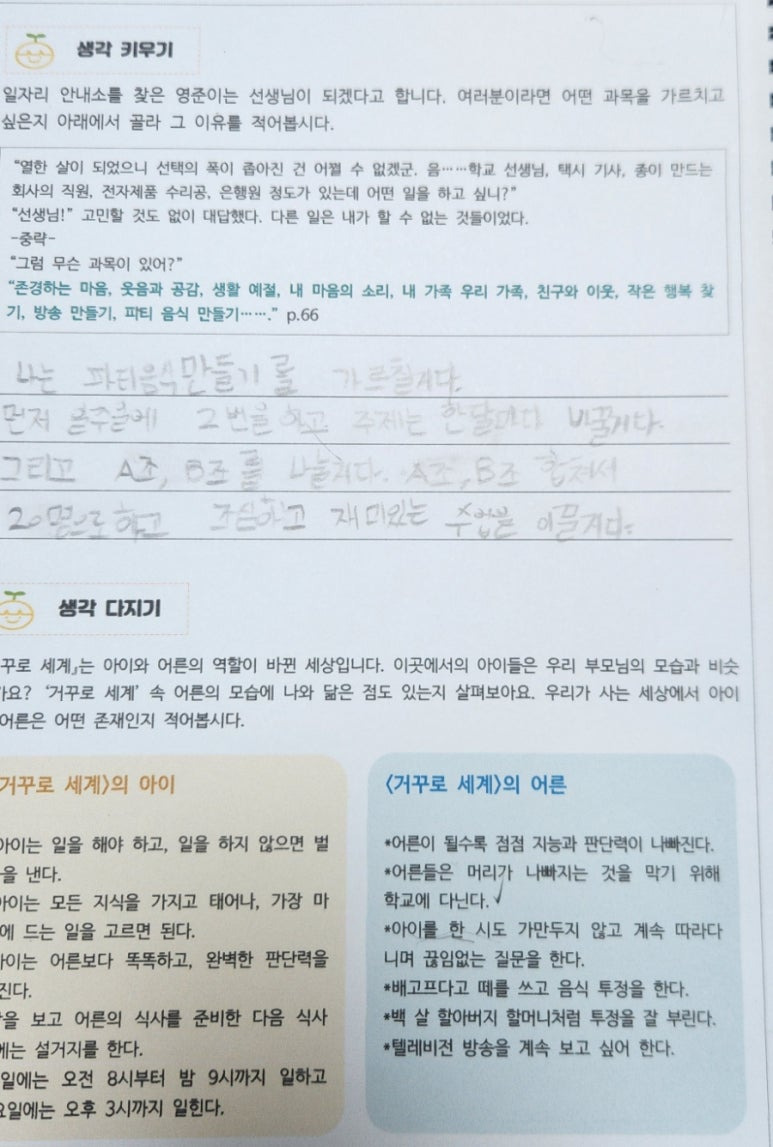 생각 키우기
일자리 안내소를 찾은 영준이는 선생님이 되겠다고 합니다. 여러분이라면 어떤 과목을 가르치고
싶은지 아래에서 골라 그 이유를 적어봅시다.
“열한 살이 되었으니 선택의 폭이 좁아진 건 어쩔 수 없겠군. 음……학교 선생님, 택시 기사, 종이 만드는
회사의 직원, 전자제품 수리공, 은행원 정도가 있는데 어떤 일을 하고 싶니?”
“선생님!” 고민할 것도 없이 대답했다. 다른 일은 내가 할 수 없는 것들이었다.
-중략-
“그럼 무슨 과목이 있어?”
“존경하는 마음, 웃음과 공감, 생활 예절, 내 마음의 소리, 내 가족 우리 가족, 친구와 이웃, 작은 행복 찾
기, 방송 만들기, 파티 음식 만들기…….” p.66
나는 파티음식만들기를 가르칠거다.
먼저 2번을 하고 주제는 한달마다 바꿀거다.
그리고 A조, B조를 나눌거다. A조, B조 합쳐서
20명으로 하고 조심하고 재미있는 수업을
생각 다지기
꾸로 세계』는 아이와 어른의 역할이 바뀐 세상입니다. 이곳에서의 아이들은 우리 부모님의 모습과 비슷
가요? ‘거꾸로 세계’ 속 어른의 모습에 나와 닮은 점도 있는지 살펴보아요. 우리가 사는 세상에서 아이
어른은 어떤 존재인지 적어봅시다.
거꾸로 세계〉의 아이
아이는 일을 해야 하고, 일을 하지 않으면 벌
을 낸다.
아이는 모든 지식을 가지고 태어나, 가장 마
에 드는 일을 고르면 된다.
아이는 어른보다 똑똑하고, 완벽한 판단력을
진다.
을 보고 어른의 식사를 준비한 다음 식사
에는 설거지를 한다.
일에는 오전 8시부터 밤 9시까지 일하고
요일에는 오후 3시까지 일한다.
〈거꾸로 세계〉의 어른
*어른이 될수록 점점 지능과 판단력이 나빠진다.
*어른들은 머리가 나빠지는 것을 막기 위해
학교에 다닌다.
*아이를 한 시도 가만두지 않고 계속 따라다
니며 끊임없는 질문을 한다.
*배고프다고 떼를 쓰고 음식 투정을 한다.
*백 살 할아버지 할머니처럼 투정을 잘 부린다.
*텔레비전 방송을 계속 보고 싶어 한다.